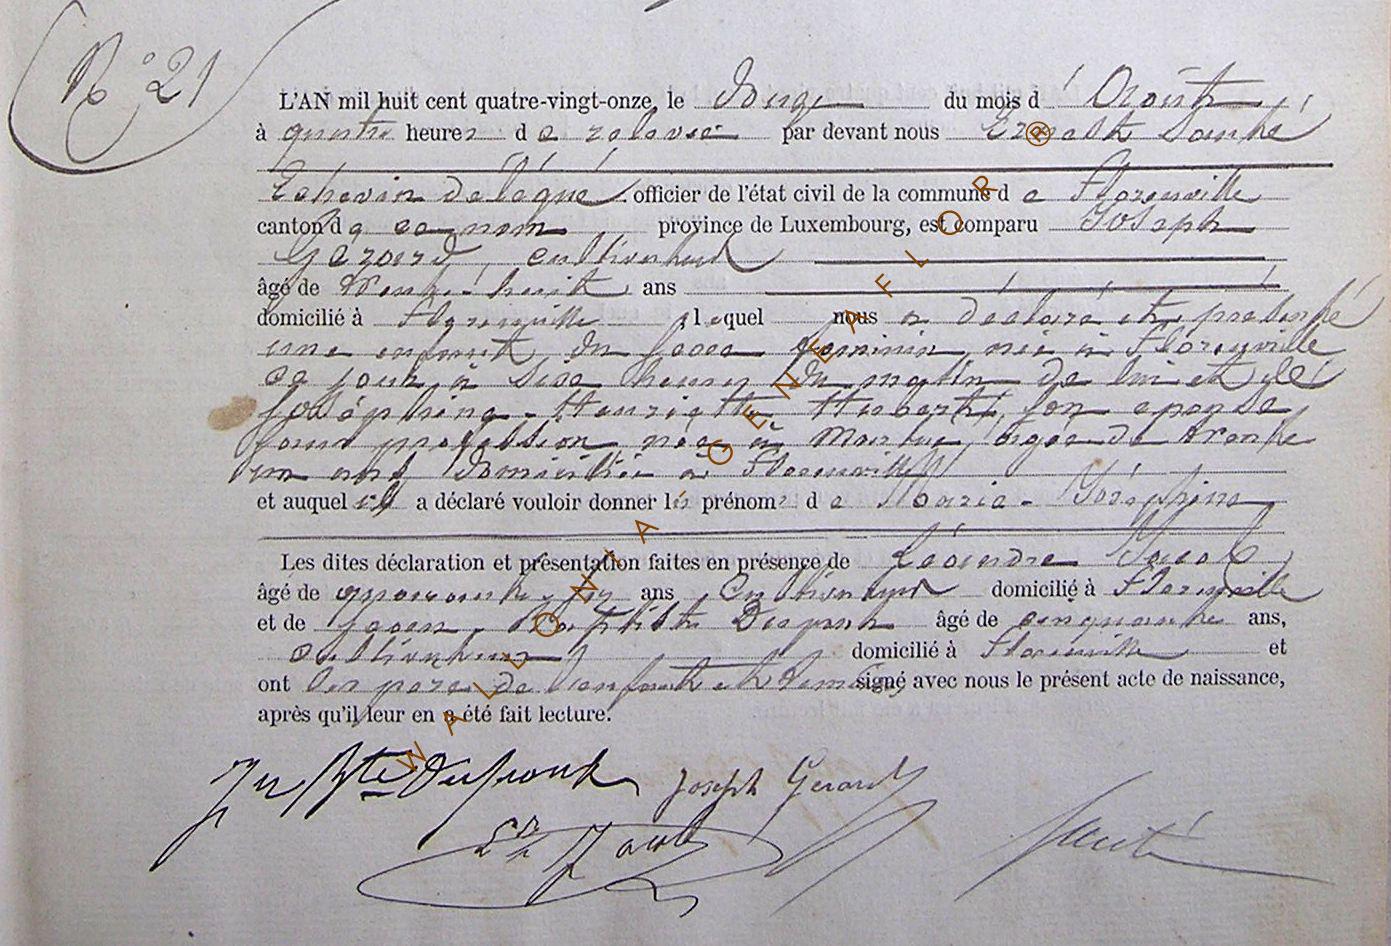 N° 21
L'AN mil huit cent quatre-vingt-onze, le douze du mois d'Août
à quatre heures de relevée par devant nous Ernest Santé
Echevin délégué officier de l'état civil de la commune de Florenville
canton de ce nom, province de Luxembourg, est comparu Joseph
Gérard, cultivateur
âgé de trente-huit ans
domicilié à Florenville, lequel nous a déclaré et présenté
une enfant du sexe féminin, née à Florenville
ce jour, à heures du matin de lui et de
Joséphine-Henriette Huberty, son épouse
sans profession née à âgée de trente
un ans, domiciliée à Florenville
et auquel il a déclaré vouloir donner les prénoms de Maria-Joséphine
Les dites déclaration et présentation faites en présence de Léandre Jacob
âgé de quarante-six ans Cultivateur domicilié à Florenville
et de Jean-Baptiste âgé de cinquante ans,
cultivateur domicilié à Florenville et
ont les père de l'enfant et témoins, signé avec nous le présent acte de naissance,
après qu'il leur en a été fait lecture.
Jn Bte Joseph Gerard
Ldre Jacob Santé
WALLONIA - GENEAFLOR ®